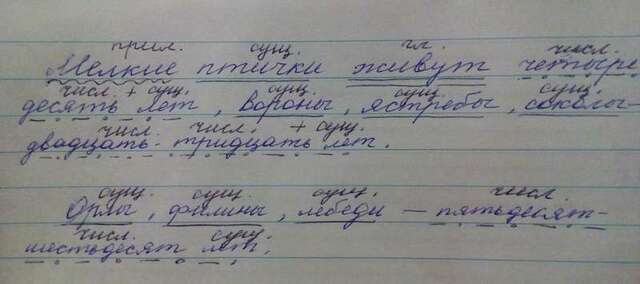 прил. сущ. гл. числ.
Мелкие птички живут четыре
числ. + сущ. сущ. сущ. сущ.
десять лет, вороны, ястребы, соколы
числ. числ. + сущ.
двадцать-тридцать лет.
сущ. сущ. сущ. числ.
Орлы, филины, лебеди — пятьдесят-
числ. сущ.
шестьдесят лет.